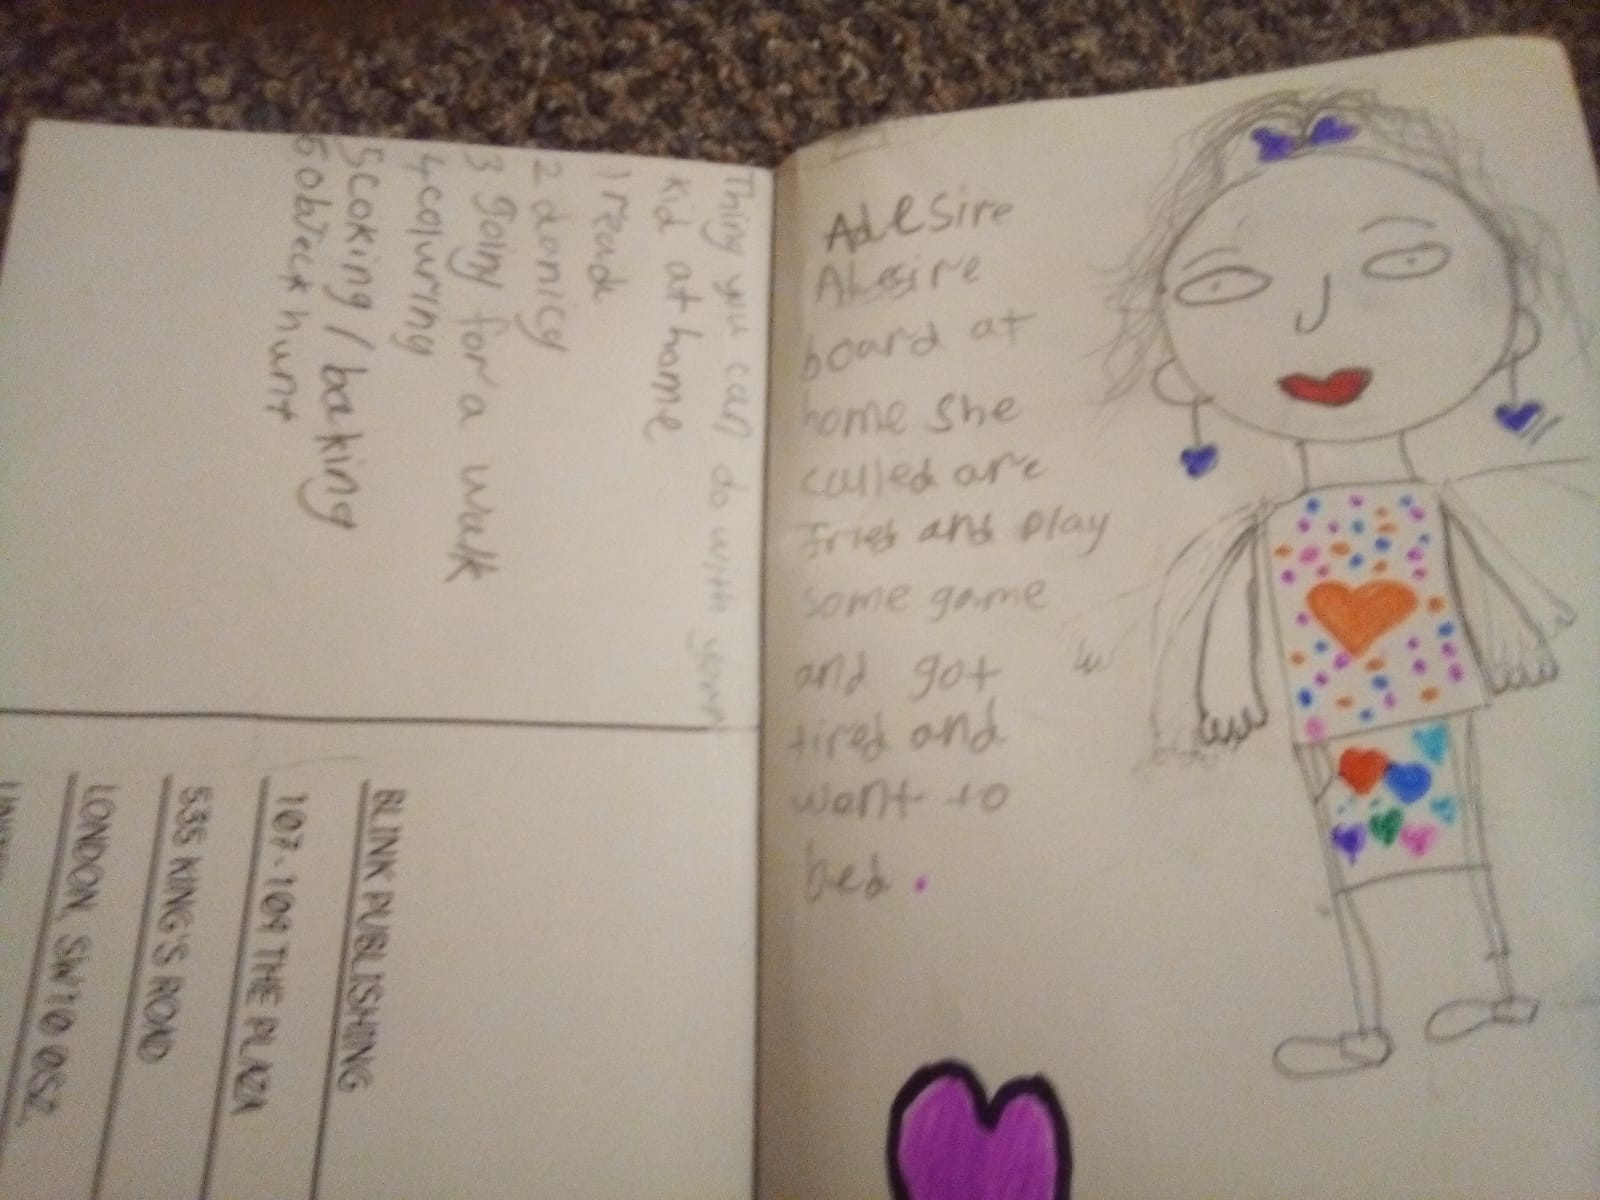 Thing you can do with your
kid at home
1 read
2 danicg
3 going for a walk
4 colouring
5 coking / baking
6 object hunt
BLINK PUBLISHING
107-109 THE PLAZA
535 KING'S ROAD
LONDON, SW10 0SZ
Adesire
Adesire
board at
home she
called are
fried and play
some game
and got
tired and
want to
bed.